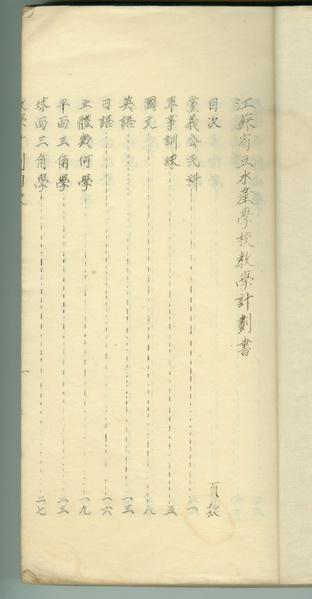 江蘇省立水產學校教學計劃書
目次 頁數
黨義公民科 一
軍事訓練 五
國文 八
英語 一三
日語 一六
立體幾何學 一九
平面三角學 二三
球面三角學 二七